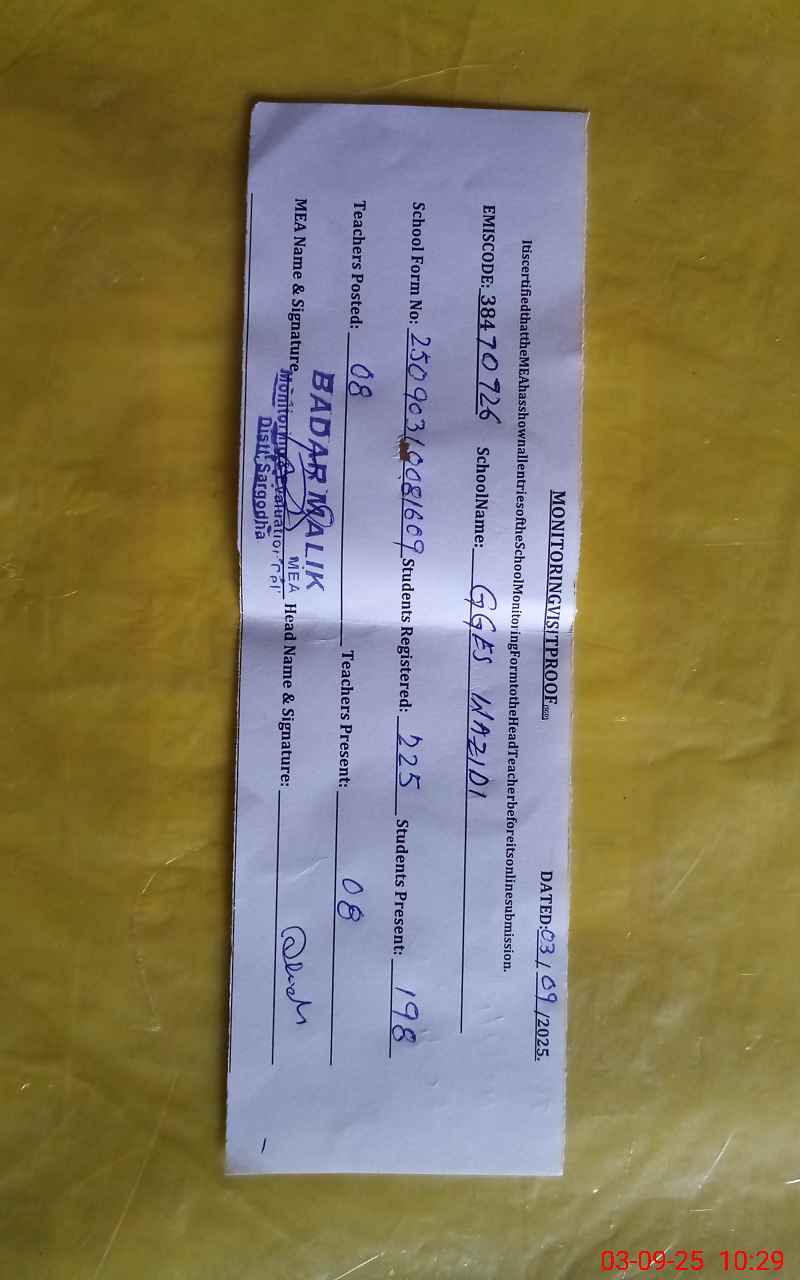 MONITORINGVISITPROOF(SED) DATED:03/09/2025.
ItiscertifiedthattheMEAhasshownallentriesoftheSchoolMonitoringFormtotheHeadTeacherbeforeitsonlinesubmission.
EMISCODE: 38470726 SchoolName: GGES WAZIDI
School Form No: 25090310081609 Students Registered: 225 Students Present: 198
Teachers Posted: 08 Teachers Present: 08
BADAR MALIK
MEA
MEA Name & Signature Head Name & Signature:
Monitoring & Evaluation Cell
Distt. Sargodha
03-09-25 10:29